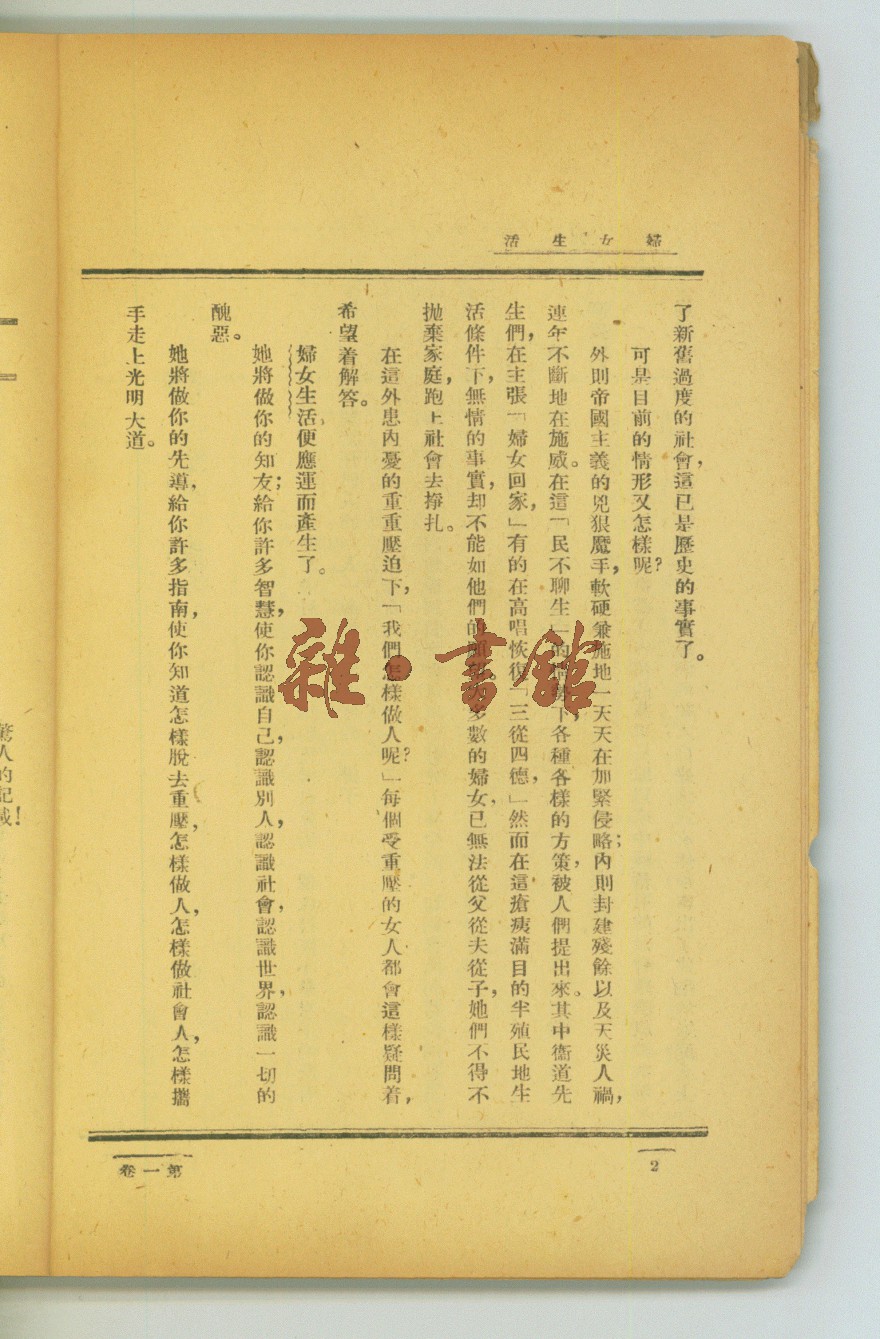 婦女生活
了新舊過度的社會，這已是歷史的事實了。
可是目前的情形又怎樣呢？
外則帝國主義的兇狠魔手，軟硬兼施地一天天在加緊侵略；內則封建殘餘以及天災人禍，
連年不斷地在施威。在這「民不聊生」的下，各種各樣的方策，被人們提出來。其中衞道先
生們，在主張「婦女回家，」有的在高唱恢復「三從四德，」然而在這瘡痍滿目的半殖民地生
活條件下，無情的事實，却不能如他們的多數的婦女，已無法從父從夫從子，她們不得不
拋棄家庭，跑上社會去掙扎。
在這外患內憂的重重壓迫下，「我們怎樣做人呢？」每個受重壓的女人都會這樣疑問着，
希望着解答。
婦女生活，便應運而產生了。
她將做你的知友；給你許多智慧，使你認識自己，認識別人，認識社會，認識世界，認識一切的
醜惡。
她將做你的先導，給你許多指南，使你知道怎樣脫去重壓，怎樣做人，怎樣做社會人，怎樣攜
手走上光明大道。
2
第一卷
驚人的記載！
雜·書館